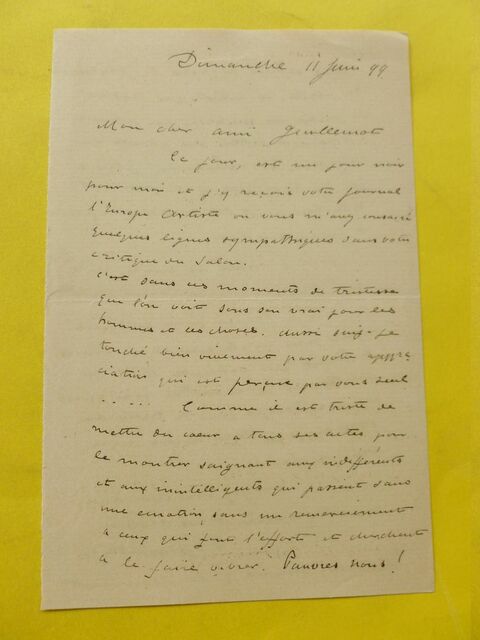 Dimanche 11 Juin 99
Mon cher ami Guillemot
Ce jour, est un jour noir
pour moi et j'y reçois votre journal
l'Europe Artiste ou vous m'avez consacré
quelques lignes sympathiques dans votre
critique du Salon.
C'est dans ces moments de tristesse
que l'on voit sous son vrai jour les
hommes et les choses. Aussi suis-je
touché bien vivement par votre appré
ciation qui est perçue par vous seul
..... Comme il est triste de
mettre du coeur a tous ses actes pour
le montrer saignant aux indifférents
et aux inintelligents qui passent sans
une emotion, sans un remerciement
a ceux qui font l'effort et cherchent
a le faire vibrer. Pauvres nous!